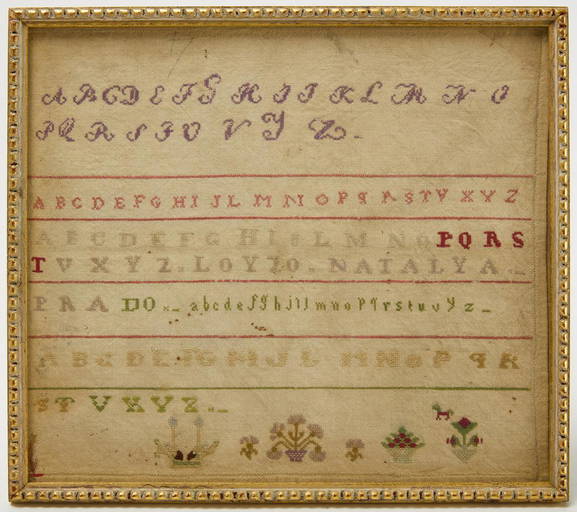 A B C D E F G H I J K L M N O
P Q R S T U V Y Z _
A B C D E F G H I J L M N O P q R S T V X Y Z
A B C D E F G H I J L M N O P Q R S
T V X Y Z . L O Y Z O . N A T A L Y A . _
P R A D O . _ a b c d e f g h j i l m n o p q r s t u v y z _
A B C D E F G H I J L M N O P q R
S T V X Y Z . . _